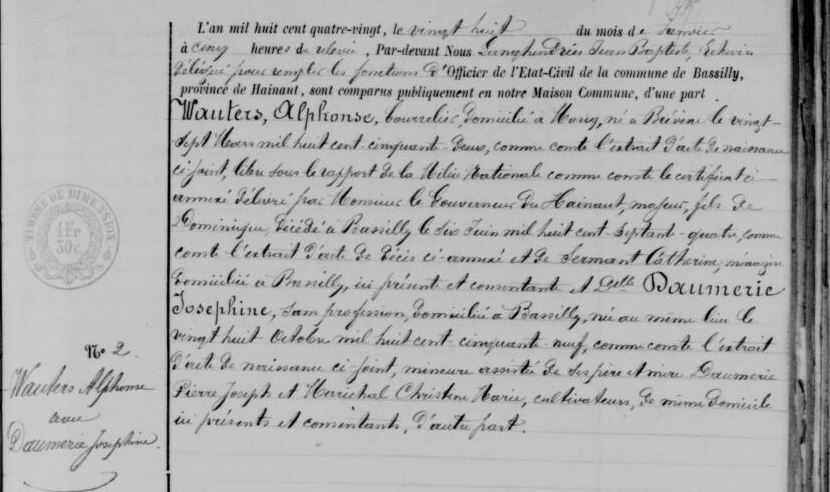 L'an mil huit cent quatre-vingt, le vingt huit du mois de Janvier
à cinq heures de relevée, Par-devant Nous Langhendries Jean Baptiste, Echevin
délégué pour remplir les fonctions d'Officier de l'Etat-Civil de la commune de Bassilly,
province de Hainaut, sont comparus publiquement en notre Maison Commune, d'une part
Wauters, Alphonse, bourrelier, domicilié à , né à le vingt-
sept Mars mil huit cent cinquante deux, comme conste l'extrait d'acte de naissance
ci-joint, libre sous le rapport de la Milice Nationale comme conste le certificat ci-
annexé délivré par Monsieur le Gouverneur du Hainaut, majeur, fils de
Dominique, décédé à Bassilly le six Juin mil huit cent septant-quatre, comme
conste l'extrait d'acte de décès ci-annexé et de Sermant Cátherine, ménagère
domiciliée à Bassilly, ici présent et consentante et Delle Daumerie
Josephine, sans profession, domiciliée à Bassilly, née au même lieu le
vingt huit Octobre mil huit cent cinquante neuf, comme conste l'extrait
d'acte de naissance ci-joint, mineure assistée de ses père et mère Daumerie
Pierre Joseph et Maréchal Christine Marie, cultivateurs, de même domicile
ici présents et consentants, d'autre part.
TIMBRE DE DIMENSION
1 Fr
30 c
No 2.
Wauters Alphonse
avec
Daumerie Josephine.